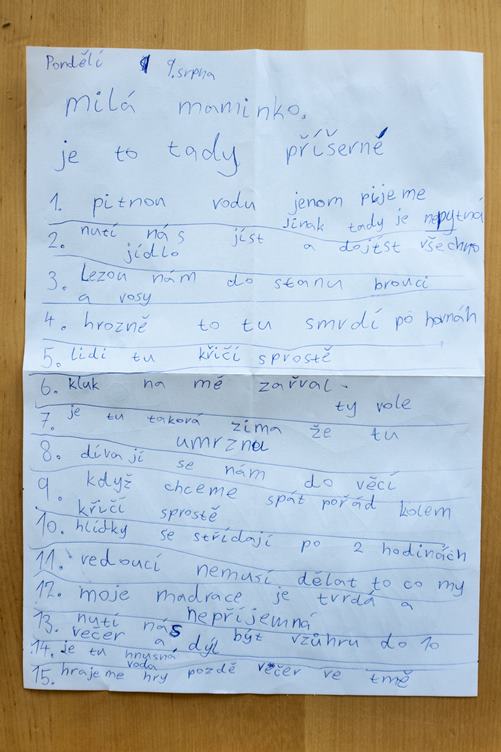 Pondělí 9. srpna
milá maminko.
je to tady příšerné
1. pitnou vodu jenom pijeme
jinak tady je nepytná
2. nutí nás jíst a dojíst všechno
jídlo
3. Lezou nám do stanu brouci
a vosy
4. hrozně to tu smrdí po hovnáh
5. lidi tu křičí sprostě
6. kluk na mě zařval.
ty vole
7. je tu taková zima že tu
umrznu
8. dívají se nám do věcí
9. když chceme spát pořád kolem
křičí sprostě
10. hlídky se střídají po 2 hodinách
11. vedoucí nemusí dělat to co my
12. moje madrace je tvrdá a
nepříjemná
13. nutí nás být vzůhru do 10
večer a dýl
14. Je tu hnusná
voda
15. hrajeme hry pozdě večer ve tmě